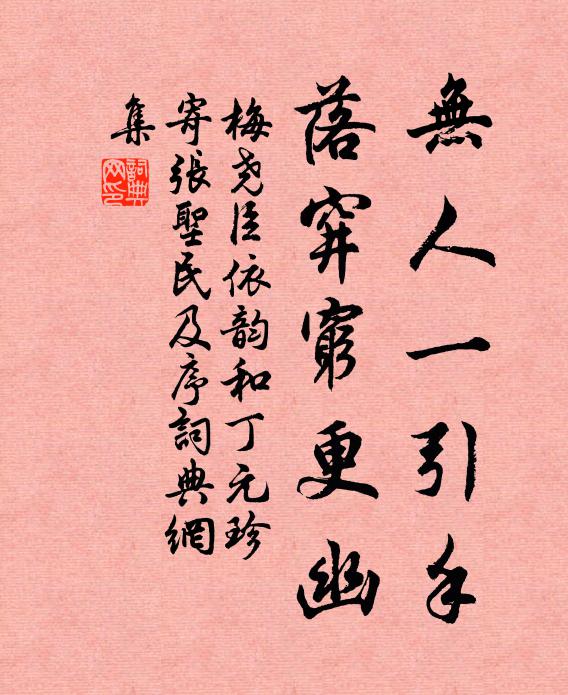 無人一引手
落穽窮更幽
梅堯臣依韵和丁元珍
寄張聖民及序詞典網
集
詞典
网印